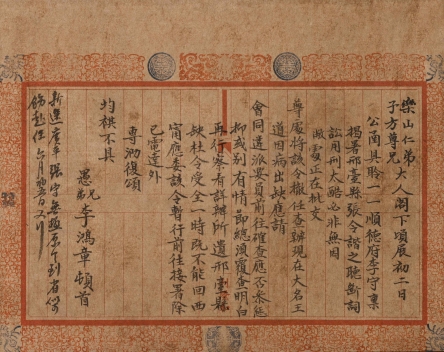 樂山仁弟大人閣下頃展初二日
子方尊兄
公函具聆一一順德府李守稟
揭署邢臺縣張令諧之聽斷詞
訟用刑太酷必非無因
敝處正在批交
尊處將該令撤任查辦現在大名王
道因病出缺應請
會同遴派妥員前往確查應否參
抑或別有情節總須覆查明白
再行察詳辦所遺邢臺縣
缺杜令受全一時既不能回西
甯應委該令暫行前往接署除
已電達外
專泐復頌
均祺不具
愚兄弟李鴻章頓首
新張守無極到省
飭赴任六月初日又